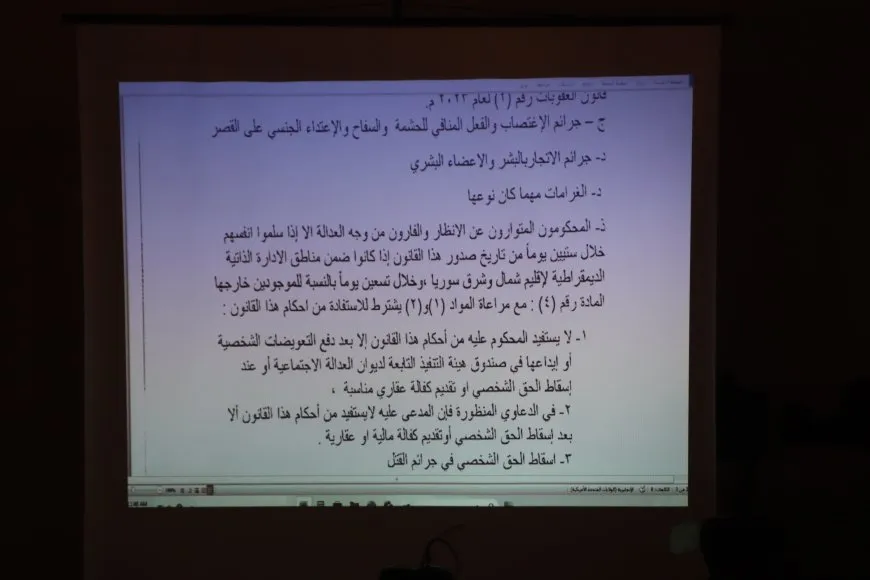 قانون العقوبات رقم (٢) لعام ٢٠٢٣ م.
ج – جرائم الإغتصاب والفعل المنافي للحشمة والسفاح والإعتداء الجنسي على القصر
د- جرائم الاتجاربالبشر والاعضاء البشري
د- الغرامات مهما كان نوعها
ذ- المحكومون المتوارون عن الانظار والفارون من وجه العدالة الا إذا سلموا انفسهم
خلال ستيين يومأ من تاريخ صدور هذا القانون إذا كانوا ضمن مناطق الادارة الذاتية
الديمقراطية لإقليم شمال وشرق سوريا ،وخلال تسعين يومأ بالنسبة للموجودين خارجها
المادة رقم (٤) : مع مراعاة المواد (١)و(٢) يشترط للاستفادة من احكام هذا القانون :
١- لا يستفيد المحكوم عليه من أحكام هذا القانون إلا بعد دفع التعويضات الشخصية
أو إيداعها في صندوق هيئة التنفيذ التابعة لديوان العدالة الاجتماعية أو عند
إسقاط الحق الشخصي او تقديم كفالة عقاري مناسبة ،
٢- في الدعاوي المنظورة فإن المدعى عليه لايستفيد من أحكام هذا القانون ألا
بعد إسقاط الحق الشخصي أوتقديم كفالة مالية او عقارية .
٣- اسقاط الحق الشخصي في جرائم القتل